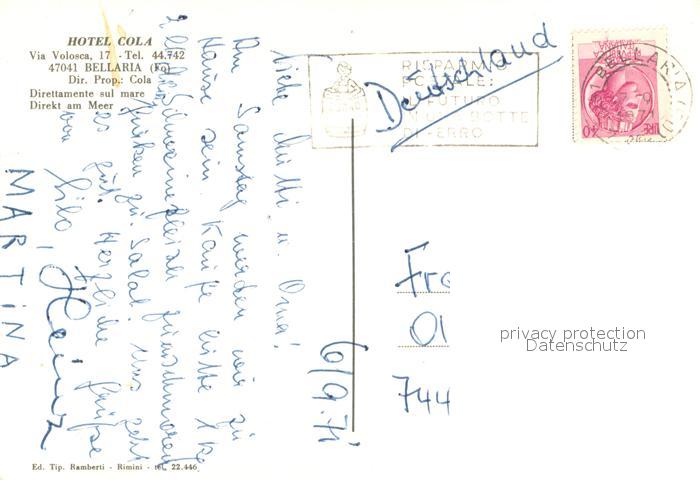 HOTEL COLA
Via Volosca, 17 - Tel. 44.742
47041 BELLARIA (Fo)
Dir. Prop.: Cola
Direttamente sul mare
Direkt am Meer
RISPARMIO
POSTALE:
FUTURO
BOTTE
DI FERRO
Deutschland
BELLARIA
LIRE 40
6/9.71
Liebe Mutti u. Oma!
Am Samstag werden wir zu
Hause sein. Kaufe bitte 1 kg
Schweinefleisch zum Schmoren
Gurken zu Salat. Uns geht
es gut. Herzliche Grüße
von Lilo, Heinz
MARTINA
Fr
Ol
744
privacy protection
Datenschutz
Ed. Tip. Ramberti - Rimini - tel. 22.446